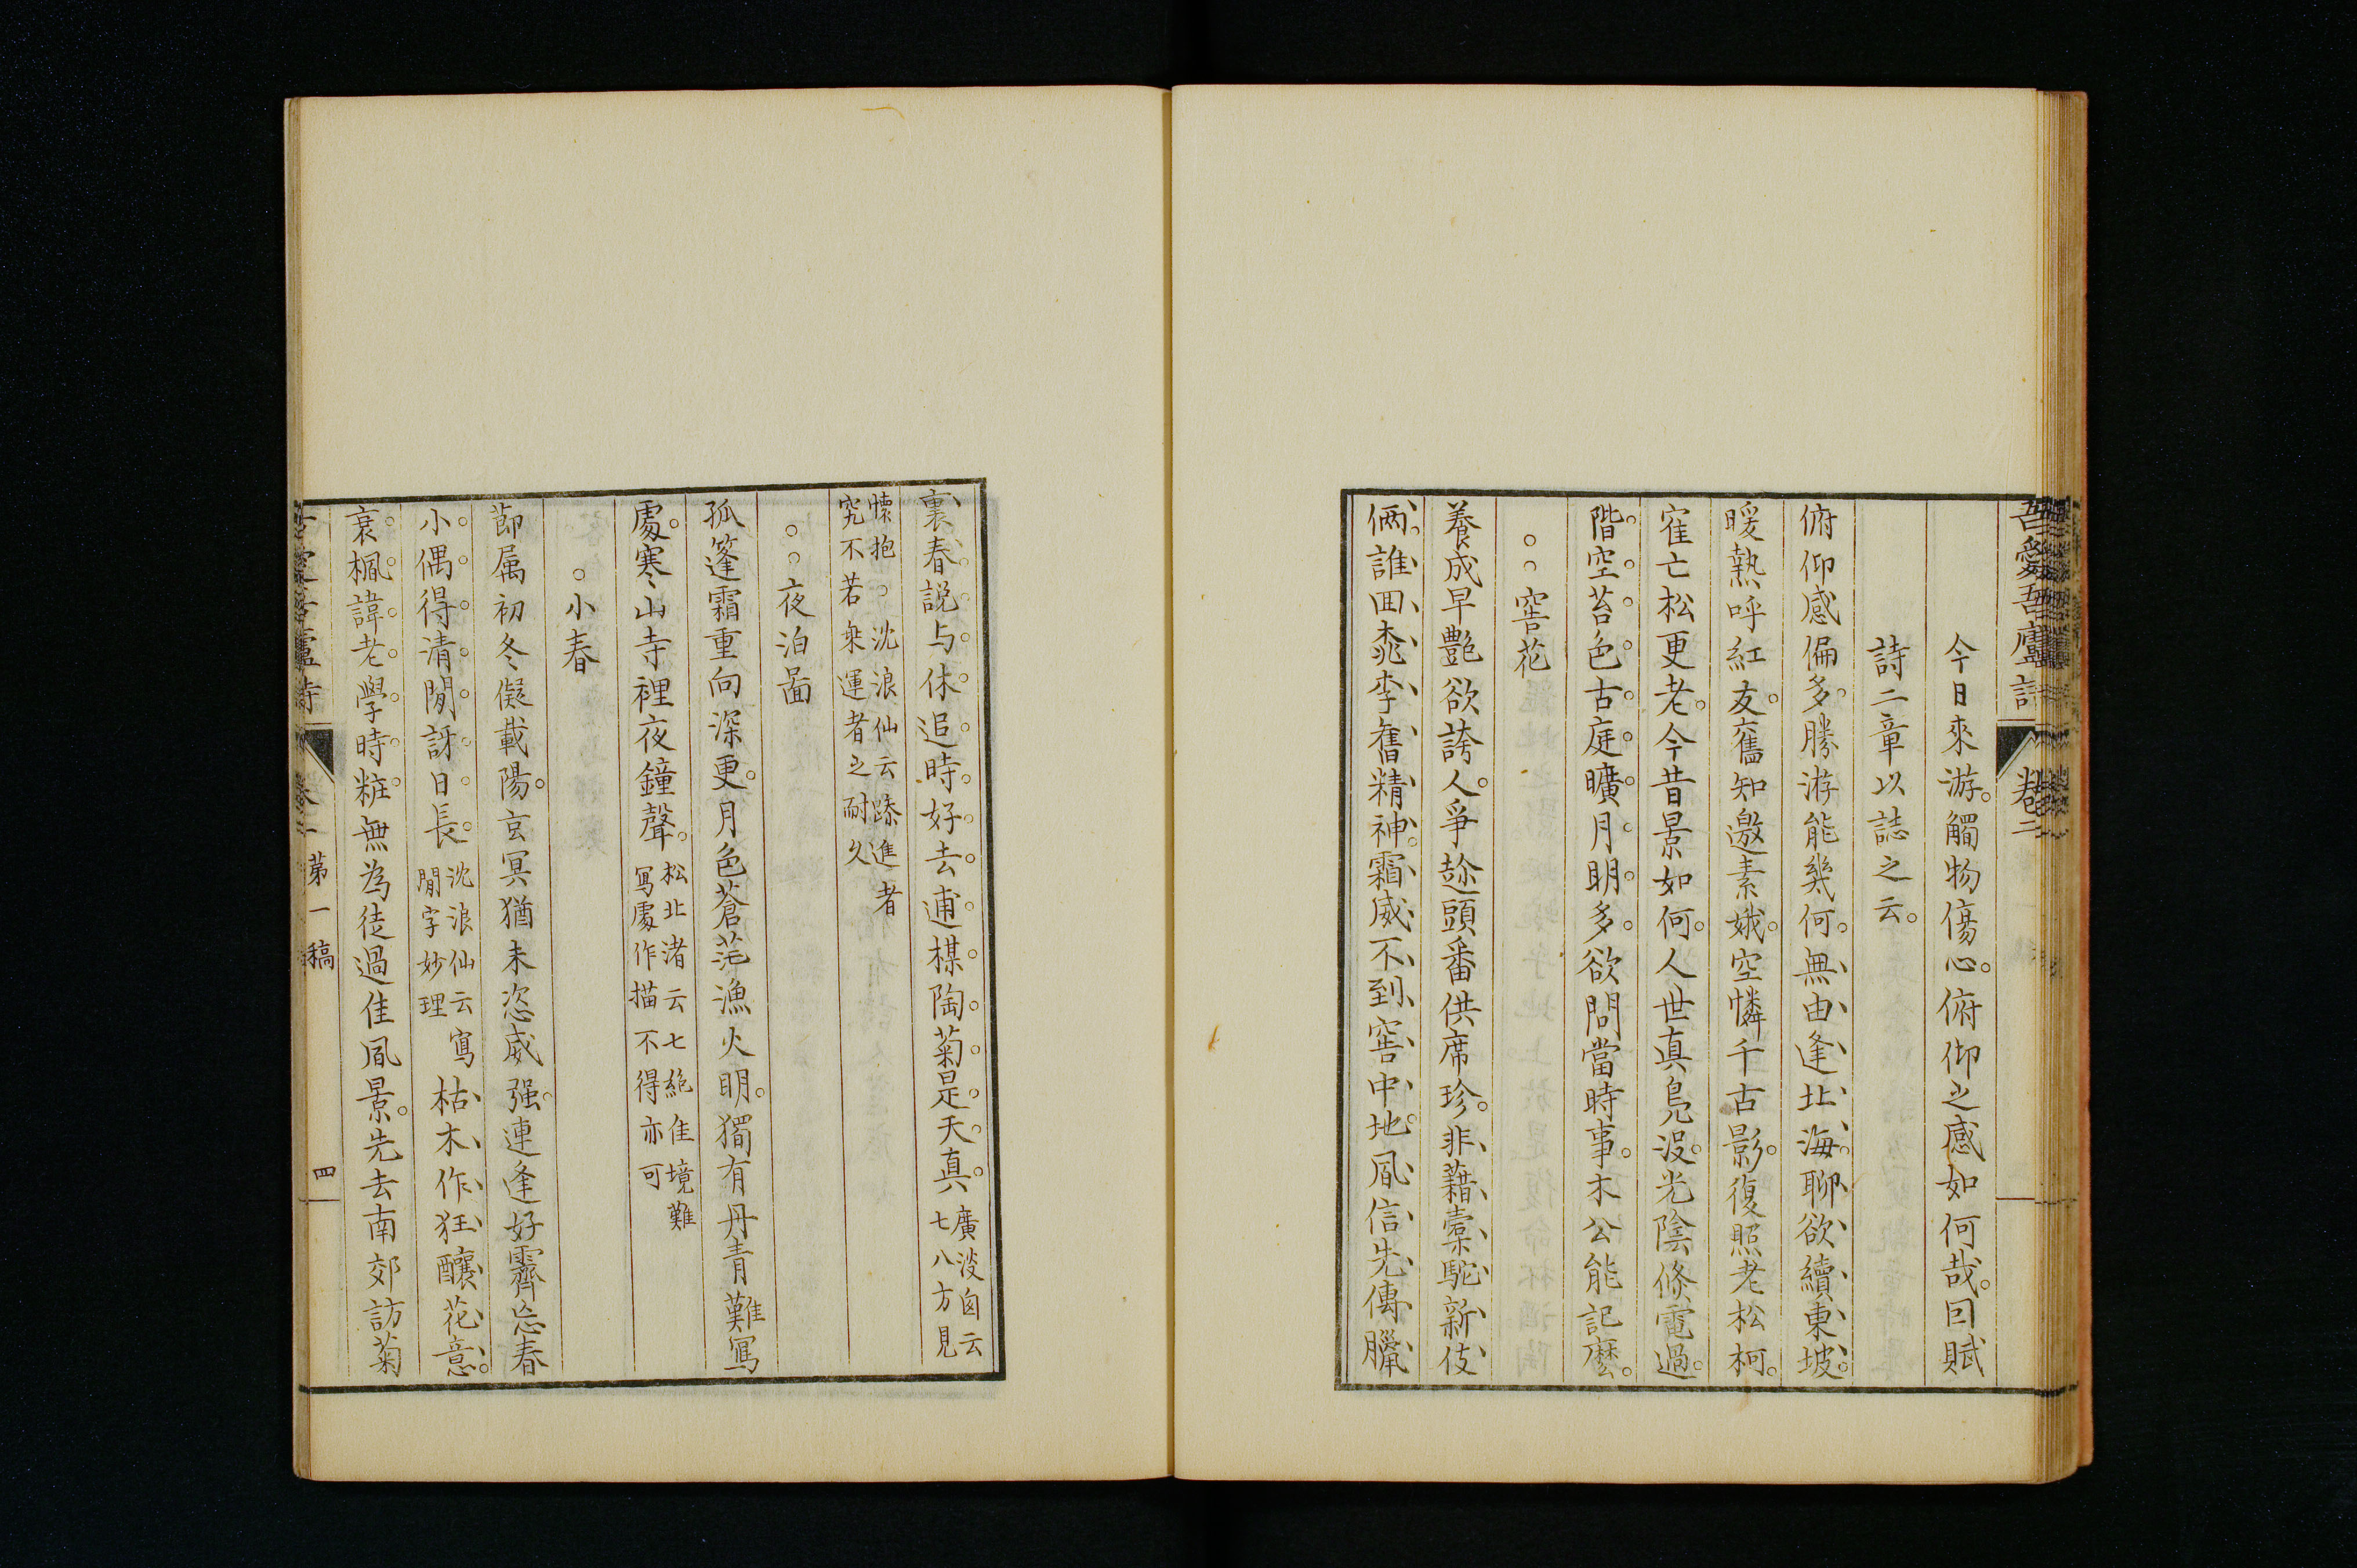 吾愛吾廬詩 卷二
今日來游。觸物傷心。俯仰之感如何哉。因賦
詩二章以誌之云。
俯仰感偏多。勝游能幾何。無由逢北海。聊欲續東坡。
暖熱呼紅友。舊知邀素娥。空憐千古影。復照老松柯。
寉亡松更老。今昔景如何。人世真鳧没。光陰倏電過。
階空苔色古。庭曠月明多。欲問當時事。木公能記麽。
○○窖花
養成早艷欲誇人。爭趂頭番供席珍。非藉槖駝新伎
倆。誰回桃李舊精神。霜威不到窖中地。風信先傳臘
裏春。説与休追時好去。連楳陶菊是天真。廣淡囱云
七八方見
懐抱。○沈浪仙云躁進者
究不若乘運者之耐久
○○夜泊啚
孤篷霜重向深更。月色蒼茫漁火明。獨有丹青難寫
處。寒山寺裡夜鐘聲。松北渚云七絶佳境難
寫處作描不得亦可
○小春
節属初冬儗載陽。玄冥猶未恣威强。連逢好霽忘春
小。偶得清閒訝日長。沈浪仙云寫
閒字妙理 枯木作狂釀花意。
衰楓諱老學時粧。無為徒過佳風景。先去南郊訪菊
吾愛吾廬詩 卷二 第一稿 四